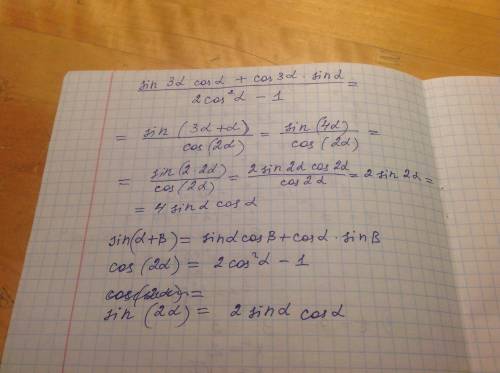 (sin 3α cosα + cos 3α · sinα) / (2cos²α - 1) =
= sin(3α+α) / cos(2α) = sin(4α) / cos(2α) =
= sin(2·2α) / cos(2α) = 2 sin2α cos2α / cos2α = 2 sin 2α =
= 4 sinα cosα
sin(α+B) = sinα cosB + cosα · sinB
cos(2α) = 2cos²α - 1
cos(2α) =
sin(2α) = 2 sinα cosα